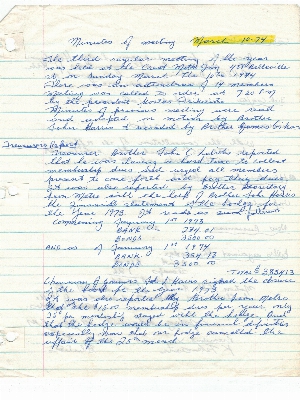 Minutes of meeting March 10-74
The third regular meeting of the year
was held at the Crest Motor Inn, 455 Belleville
st on Sunday March the 10th 1974
There was an attendance of 14 members
Meeting was called to order at 7:20 P.M
by the president
Minutes of previous meeting were read
and adopted on motion by Brother
John Harris & seconded by Brother James
Treasurers Report
Treasurer Brother John C reported
that he was having a hard time to collect
membership dues and urged all members
present to come forth and pay their dues
It was also reported by Brother Secretary
from Metro with the help of Brother John Harris
the financial statement of the lodge
the year 1973. It reads as such follows
Commencing January 1st 1973
BANK
BONDS 3500.00
AND as of January 1st 1974
BANK 354.13
BONDS 3500.00
TOTAL $3854.13
Chairman signed the closure
of the books of the year 1973
It was also reported by Brother from Metro
that the membership dues per year only
per membership stayed with the lodge. And
that the lodge would be in financial
especially now that our lodge cancelled the
affair of the 25th